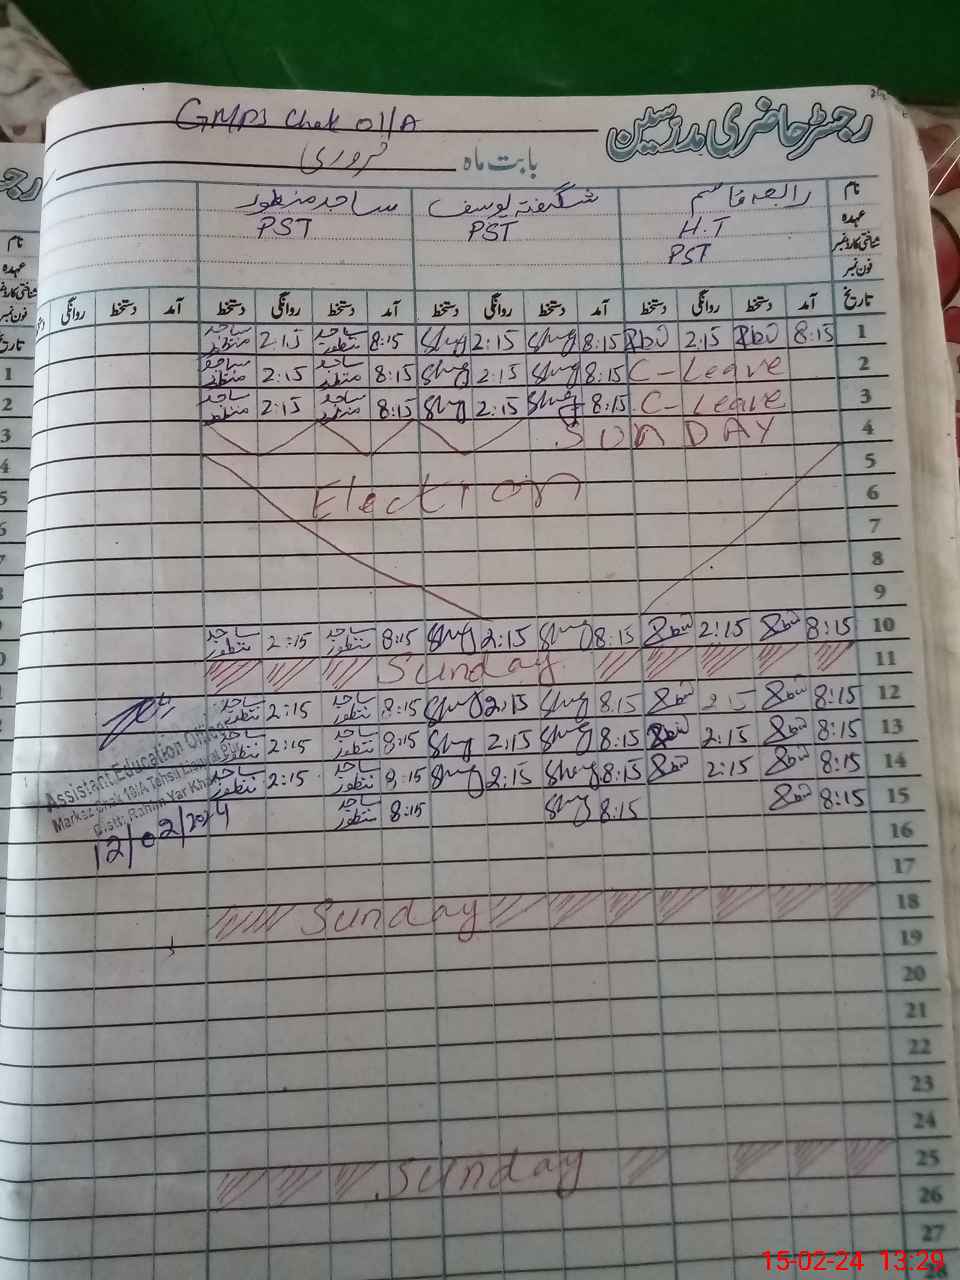 GMPS Chak 01/A
رجسٹر حاضری مدرسین
بابت ماہ فروری
نام رابعہ قاسم شگفتہ یوسف ساجد منظور
عہدہ H.T PST PST
شناختی کارڈ نمبر PST
فون نمبر
تاریخ آمد دستخط روانگی دستخط آمد دستخط روانگی دستخط آمد دستخط روانگی دستخط آمد دستخط روانگی
1 8:15 2:15 8:15 Shug 2:15 Shug 8:15 ساجد منظور 2:15 ساجد منظور
2 C-Leave 8:15 Shug 2:15 Shug 8:15 ساجد منظور 2:15 ساجد منظور
3 C-Leave 8:15 Shug 2:15 Shug 8:15 ساجد منظور 2:15 ساجد منظور
4 SUNDAY
5
6 Election
7
8
9
10 8:15 2:15 8:15 Shug 2:15 Shug 8:15 ساجد منظور 2:15 ساجد منظور
11 Sunday
12 8:15 2:15 8:15 Shug 2:15 Shug 8:15 ساجد منظور 2:15 ساجد منظور
13 8:15 2:15 8:15 Shug 2:15 Shug 8:15 ساجد منظور 2:15 ساجد منظور
14 8:15 2:15 8:15 Shug 2:15 Shug 8:15 ساجد منظور 2:15 ساجد منظور
15 8:15 8:15 Shug 8:15 ساجد منظور
Assistant Education Officer
Markaz Chak 18/A Tehsil Liaquat Pur
Distt. Rahim Yar Khan
12/02/2024
16
17
18 Sunday
19
20
21
22
23
24
25 Sunday
26
27
28
15-02-24 13:29